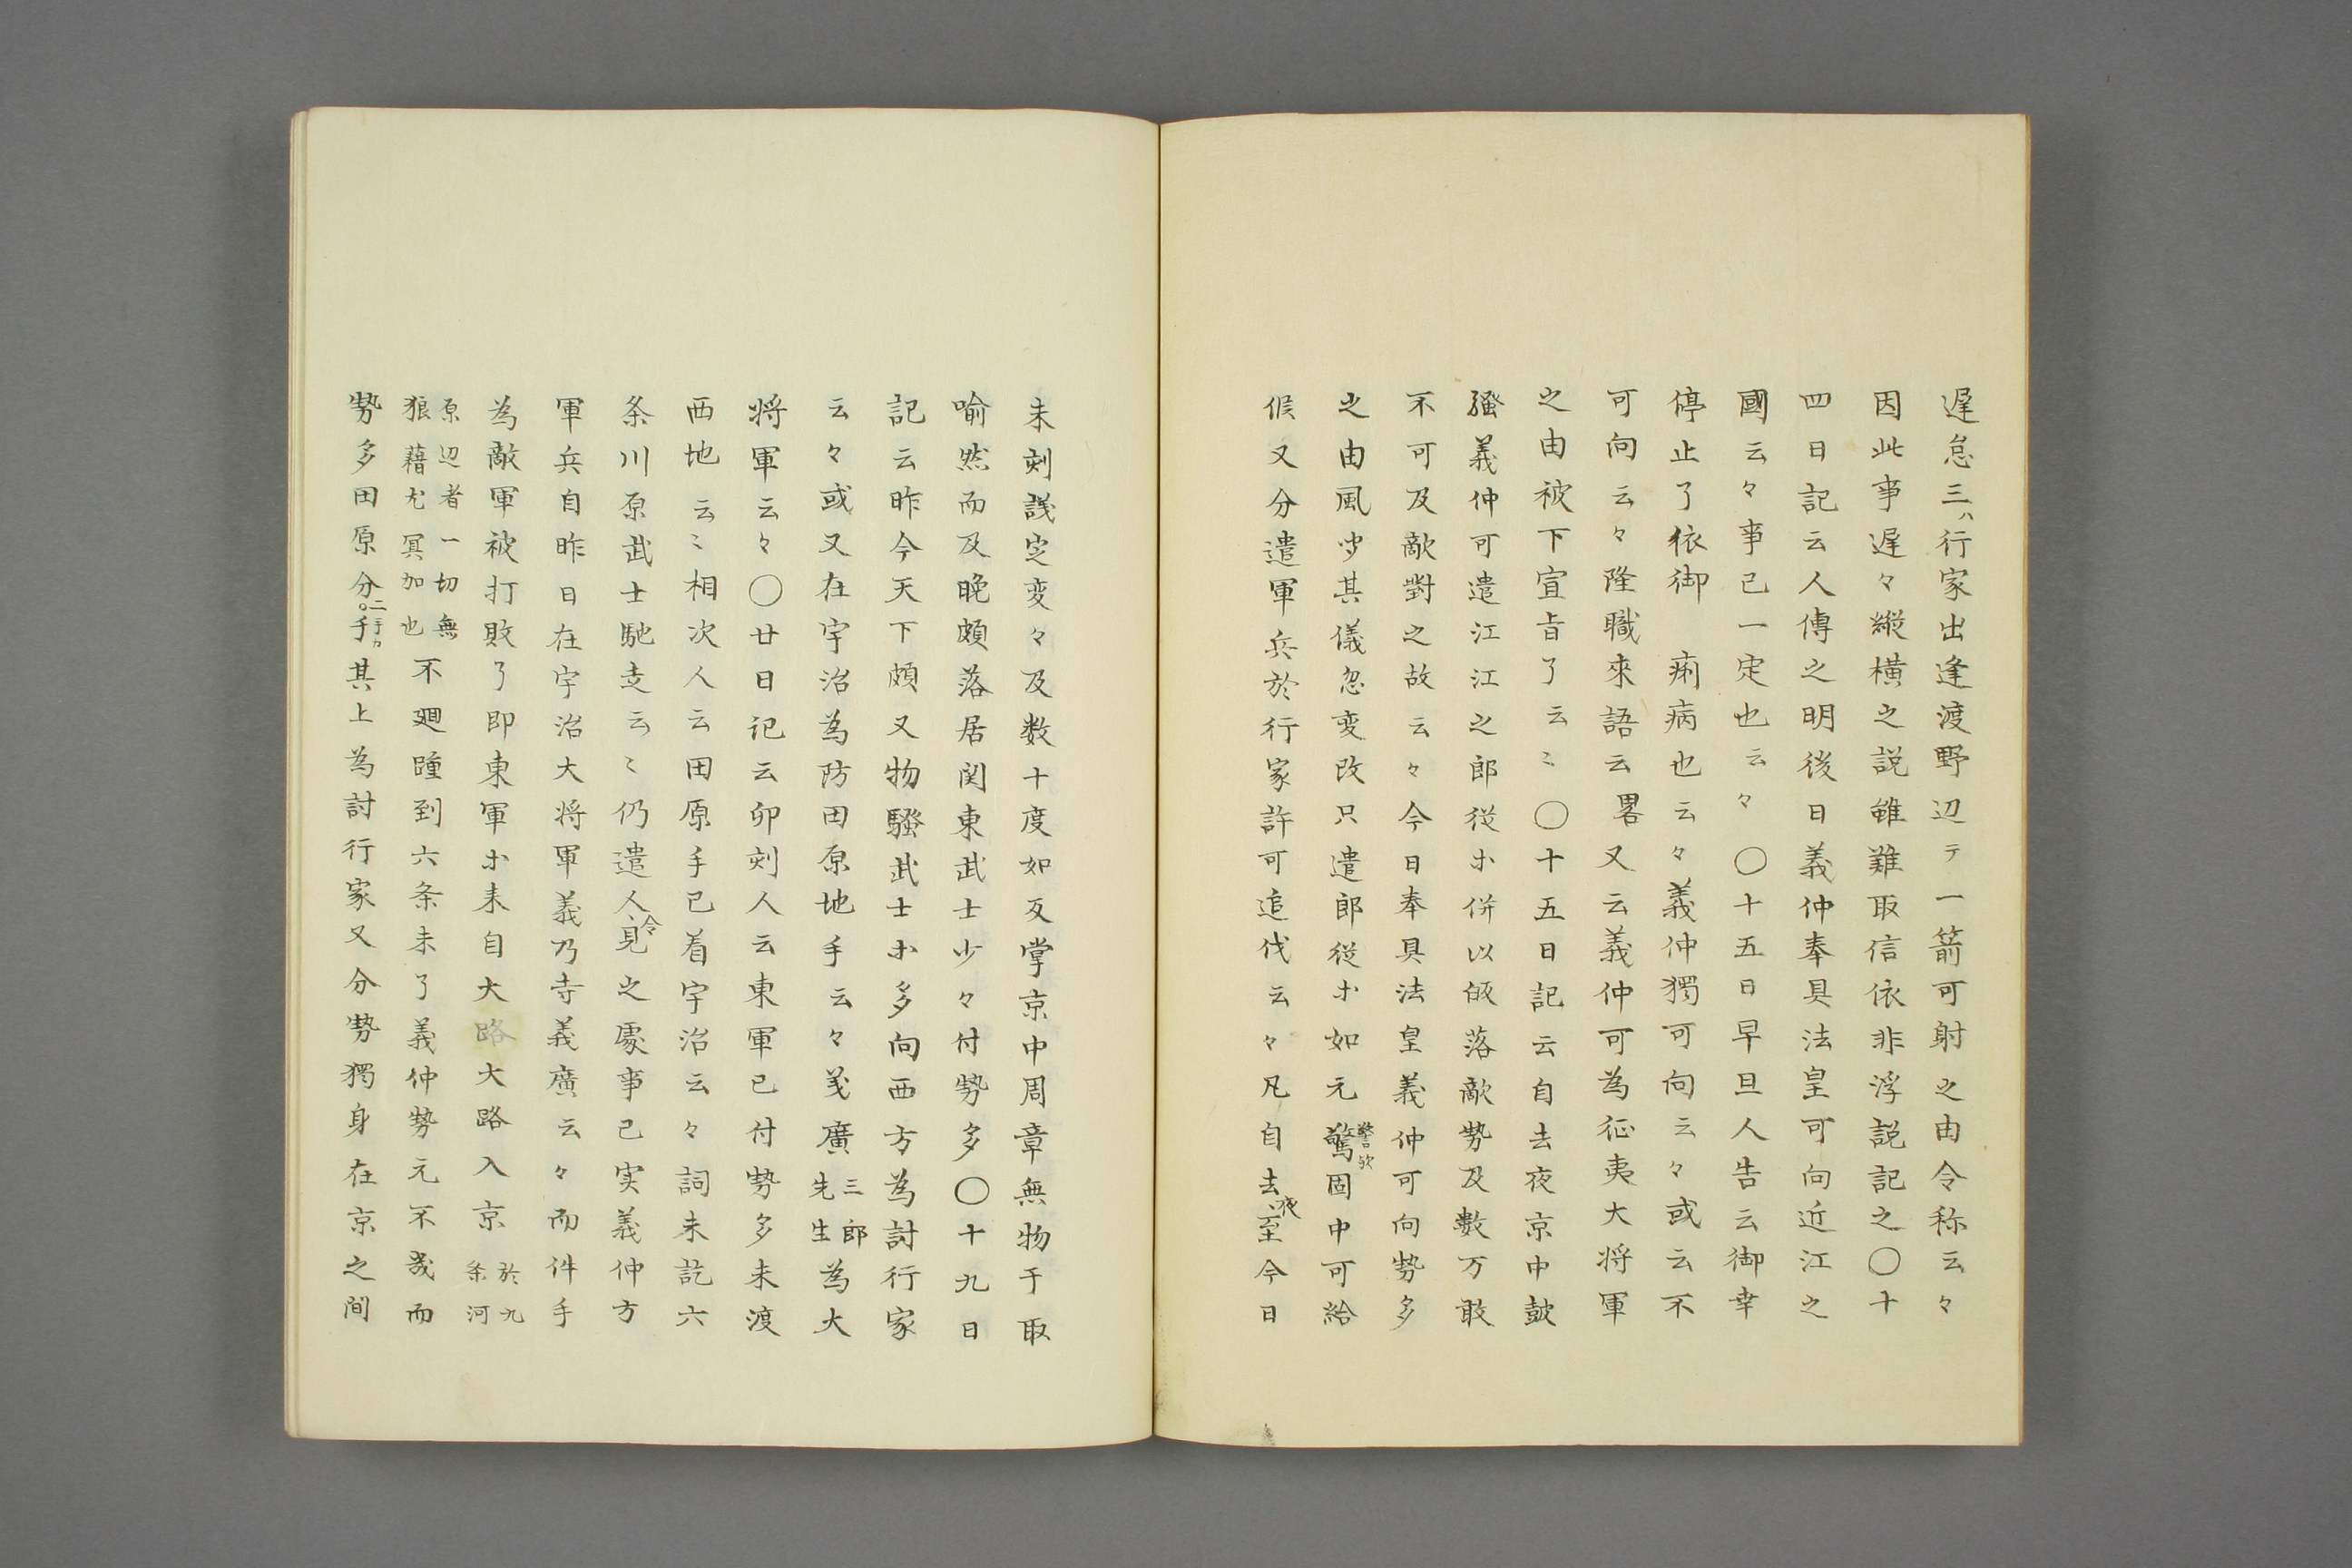 遅怠三ハ行家出逢渡野辺テ一箭可射之由令称云々
因此事遅々縦横之説雖難取信依非浮説記之〇十
四日記云人傳之明後日義仲奉具法皇可向近江之
國云々事已一定也云々〇十五日早旦人告云御幸
停止了依御 痢病也云々義仲獨可向云々或云不
可向云々隆職來語云畧又云義仲可為征夷大将軍
之由被下宣旨了云〻〇十五日記云自去夜京中鼓
騒義仲可遣江江之郎従ホ併以皈落敵勢及數万敢
不可及敵對之故云々今日奉具法皇義仲可向勢多
之由風聞其儀忽変改只遣郎従ホ如元驚警歟固中可給
候又分遣軍兵於行家許可追伐云々凡自去夜至今日
未刻議定変々及数十度如反掌京中周章無物于取
喩然而及晩頗落居関東武士少々付勢多〇十九日
記云昨今天下頗又物騒武士ホ多向西方為討行家
云々或又在宇治為防田原地手云々義廣三郎先生為大
将軍云々〇廿日记云卯刻人云東軍已付勢多未渡
西地云〻相次人云田原手已着宇治云々詞未訖六
条川原武士馳走云〻仍遣人令見之處事已実義仲方
軍兵自昨日在宇治大将軍義乃寺義廣云々而件手
為敵軍被打敗了即東軍ホ来自大路大路入京於九条河
原辺者一切無狼藉尤冥加也不廻踵到六条末了義仲勢元不幾而
勢多田原分二手カ手其上為討行家又分勢獨身在京之間